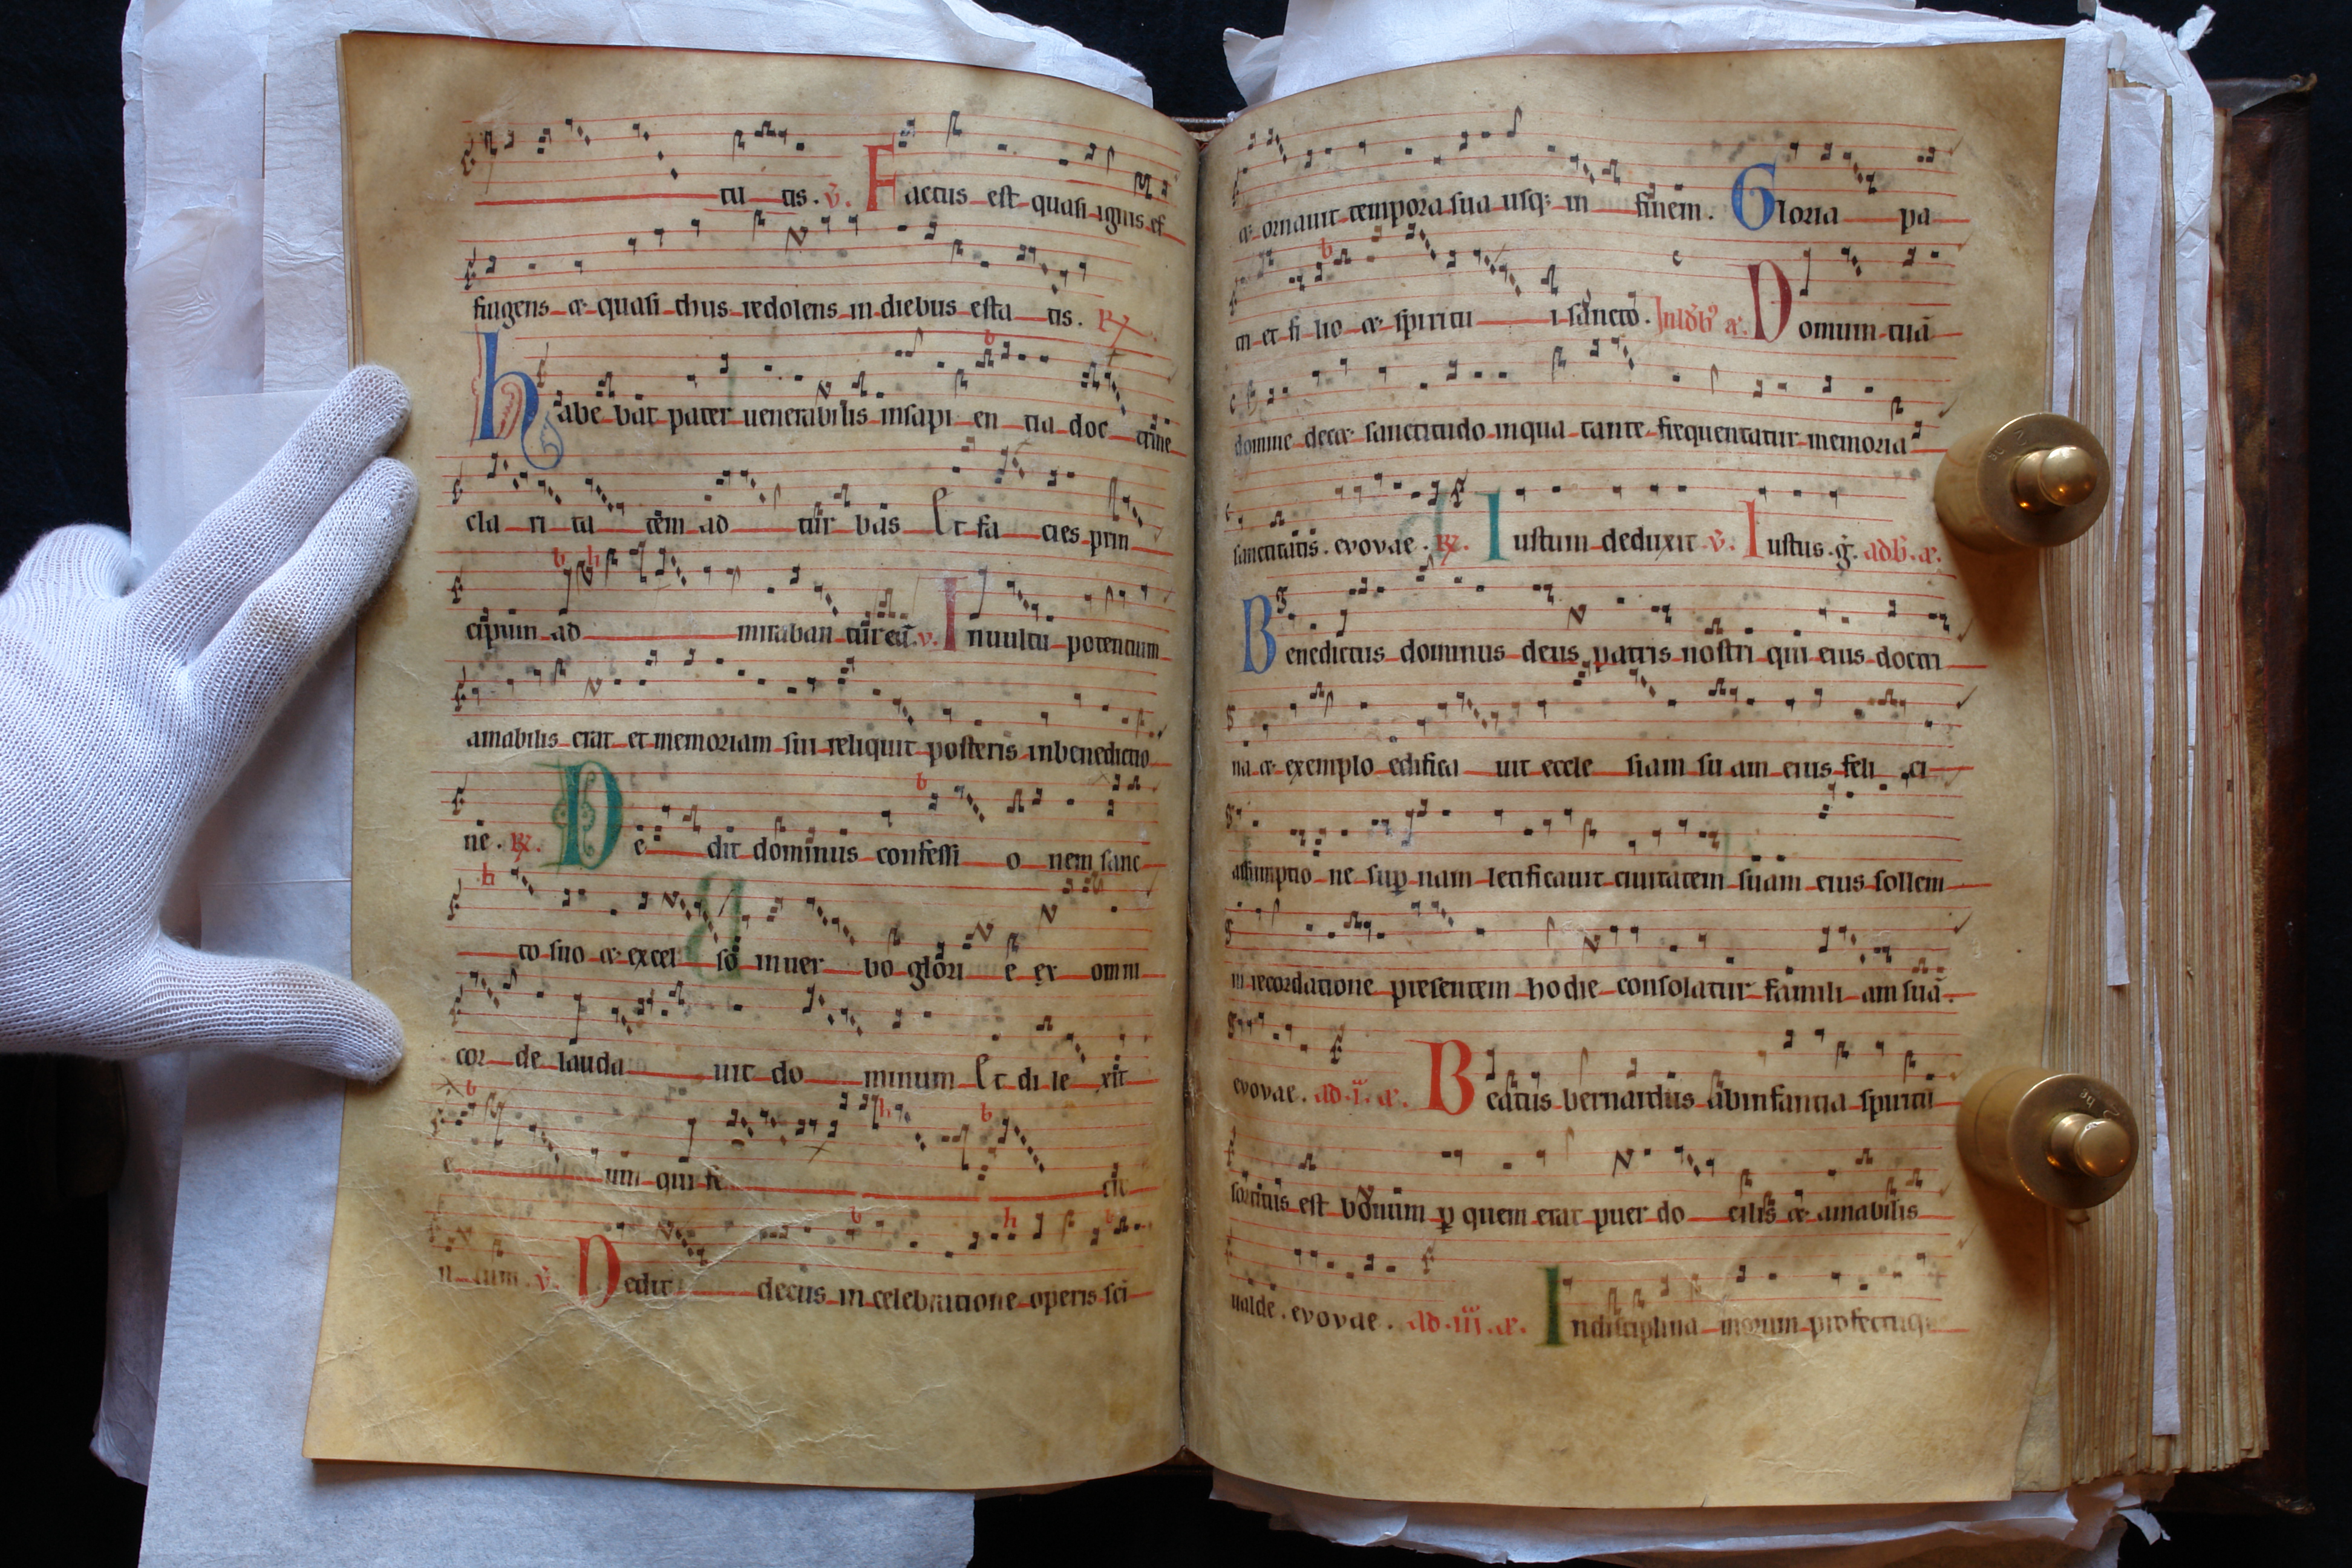 tu tis. v̄. Factus est quasi ignis ef
fugens & quasi thus redolens in diebus esta tis. R
Habe bat pater uenerabilis insapi en tia doc trine
cla ri ta tem ad tur bas Et fa cies prin
cipum ad miraban tur eā. v. Inuultu potentum
amabilis erat et memoriam sui reliquit posteris inbenedictio
ne. R. De dit dominus confessi o nem sanc
to suo & excel so inuer bo glori e ex omni
cor de lauda uit do minum Et di le xit
e um qui fe cit
il lum. v̄. Dedit decus in celebratione operis sci
& ornauit tempora sua usq; in finem. Gloria pa
tri et fi lio & spiritu i sancto. Domum tuā
domine decet sanctitudo inqua tante frequentatur memoria
sanctitatis. evovae. R. Iustum deduxit v̄. Iustus. g̣. adb̄. a.
Benedictus dominus deus patris nostri qui eius doctri
na & exemplo edifica uit eccle siam su am eius feli ci
assumptio ne sup nam letificauit ciuitatem suam eius sollem
ni recordatione presentem hodie consolatur famili am suā.
evovae. ad. i. a. Beatus bernardus abinfantia spiritū
sortitus est bonum p quem erat puer do cilis & amabilis
ualde. evovae. ad. iii. a. Indisciplina morum profectuq